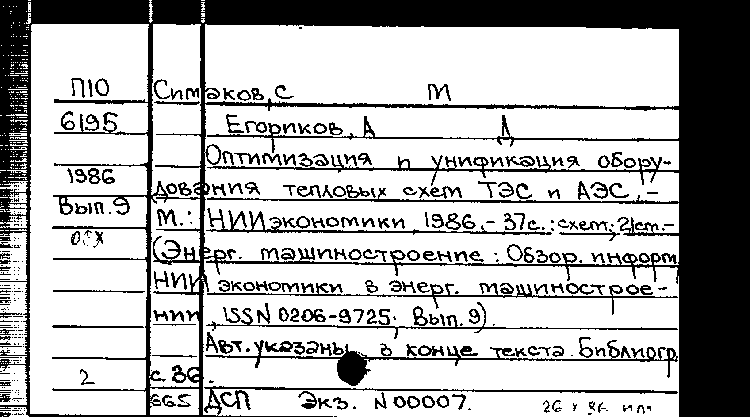 П10 Симаков, С М
6195 Егориков, А Д
Оптимизация и унификация обору-
1986 дования тепловых схем ТЭС и АЭС.-
Вып.9 М.: НИИэкономики, 1986.- 37с.: схем; 21см.-
(Энерг. машиностроение: Обзор. информ
НИИэкономики в энерг. машинострое-
нии, ISSN 0206-9725; Вып. 9).
Авт. указаны в конце текста. Библиогр
2 с.36.
665 ДСП Экз. N00007.